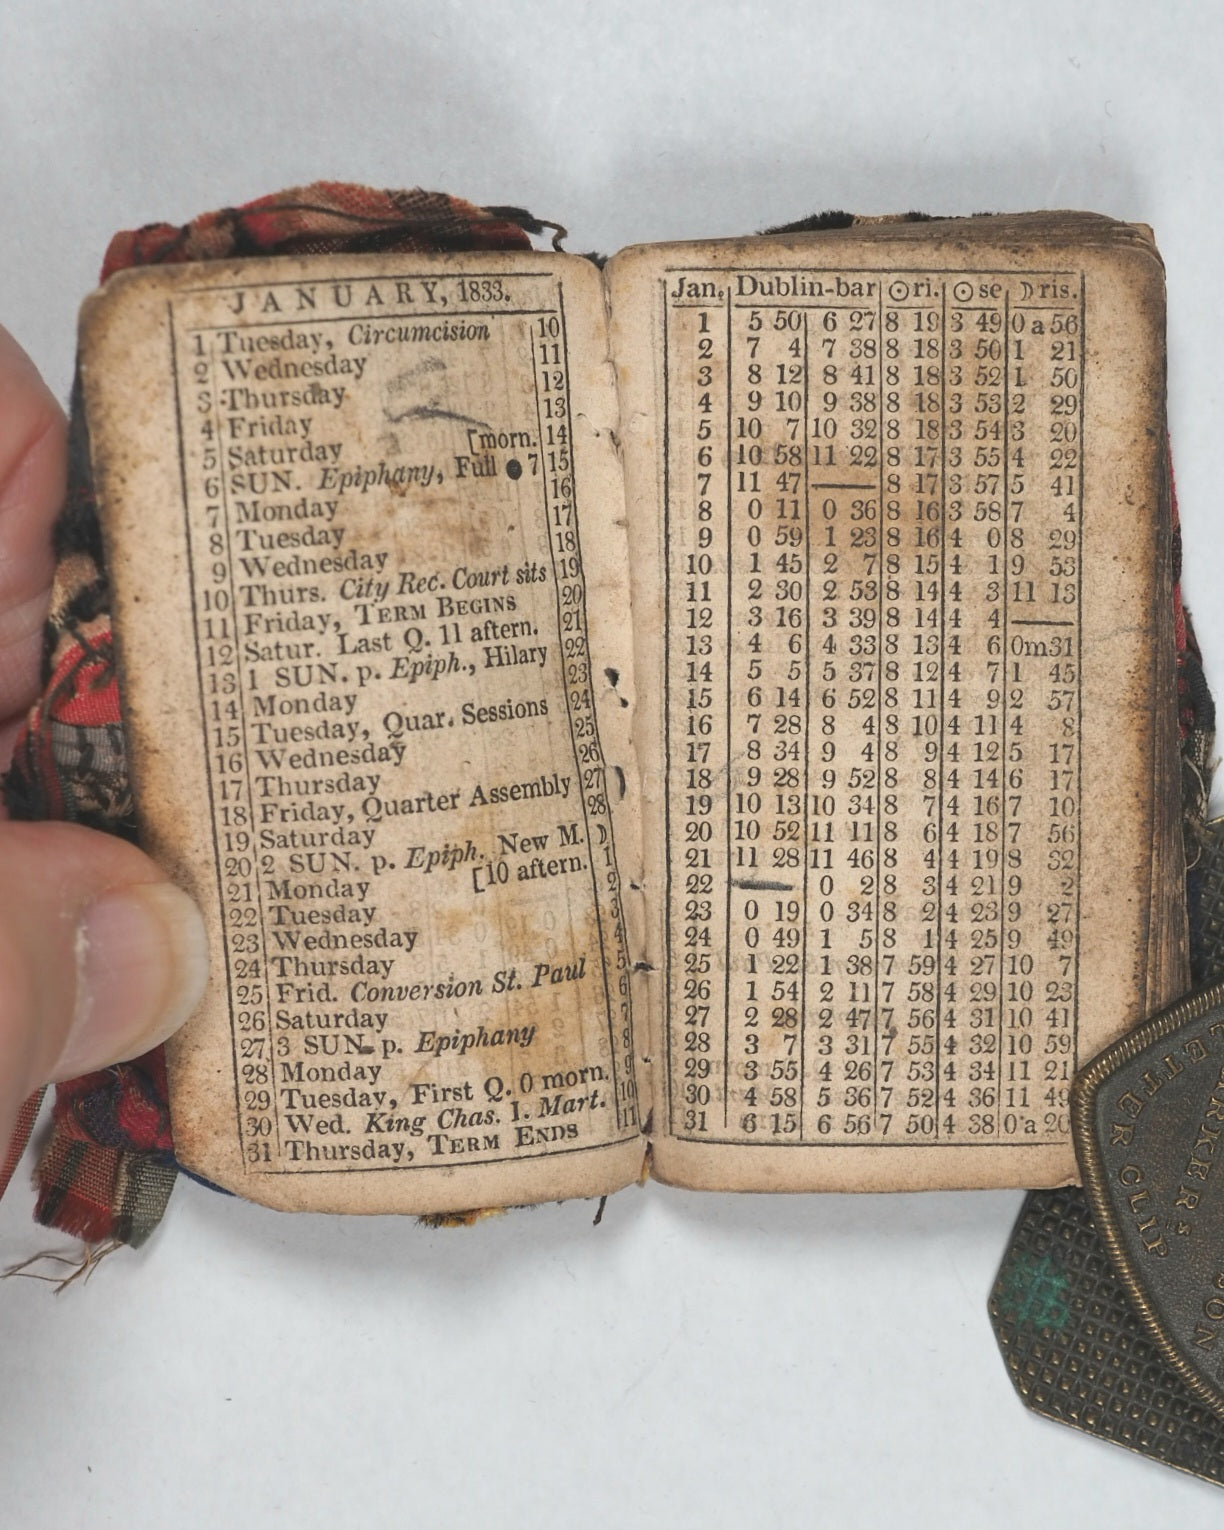 JANUARY, 1833.
1 Tuesday, Circumcision 10
2 Wednesday 11
3 Thursday 12
4 Friday 13
5 Saturday [morn. 14
6 SUN. Epiphany, Full ● 7 15
7 Monday 16
8 Tuesday 17
9 Wednesday 18
10 Thurs. City Rec. Court sits 19
11 Friday, TERM BEGINS 20
12 Satur. Last Q. 11 aftern. 21
13 1 SUN. p. Epiph., Hilary 22
14 Monday 23
15 Tuesday, Quar. Sessions 24
16 Wednesday 25
17 Thursday 26
18 Friday, Quarter Assembly 27
19 Saturday 28
20 2 SUN. p. Epiph. New M. ☽
21 Monday [10 aftern. 1
22 Tuesday 2
23 Wednesday 3
24 Thursday 4
25 Frid. Conversion St. Paul 5
26 Saturday 6
27 3 SUN. p. Epiphany 7
28 Monday 8
29 Tuesday, First Q. 0 morn. 9
30 Wed. King Chas. I. Mart. 10
31 Thursday, TERM ENDS 11
Jan. Dublin-bar ☉ ri. ☉ se ☽ ris.
1 5 50 6 27 8 19 3 49 0 a 56
2 7 4 7 38 8 18 3 50 1 21
3 8 12 8 41 8 18 3 52 1 50
4 9 10 9 38 8 18 3 53 2 29
5 10 7 10 32 8 18 3 54 3 20
6 10 58 11 22 8 17 3 55 4 22
7 11 47 — 8 17 3 57 5 41
8 0 11 0 36 8 16 3 58 7 4
9 0 59 1 23 8 16 4 0 8 29
10 1 45 2 7 8 15 4 1 9 53
11 2 30 2 53 8 14 4 3 11 13
12 3 16 3 39 8 14 4 4 —
13 4 6 4 33 8 13 4 6 0m31
14 5 5 5 37 8 12 4 7 1 45
15 6 14 6 52 8 11 4 9 2 57
16 7 28 8 4 8 10 4 11 4 8
17 8 34 9 4 8 9 4 12 5 17
18 9 28 9 52 8 8 4 14 6 17
19 10 13 10 34 8 7 4 16 7 10
20 10 52 11 11 8 6 4 18 7 56
21 11 28 11 46 8 4 4 19 8 32
22 — 0 2 8 3 4 21 9 2
23 0 19 0 34 8 2 4 23 9 27
24 0 49 1 5 8 1 4 25 9 49
25 1 22 1 38 7 59 4 27 10 7
26 1 54 2 11 7 58 4 29 10 23
27 2 28 2 47 7 56 4 31 10 41
28 3 7 3 31 7 55 4 32 10 59
29 3 55 4 26 7 53 4 34 11 21
30 4 58 5 36 7 52 4 36 11 49
31 6 15 6 56 7 50 4 38 0 a 20
LETTER CLIP